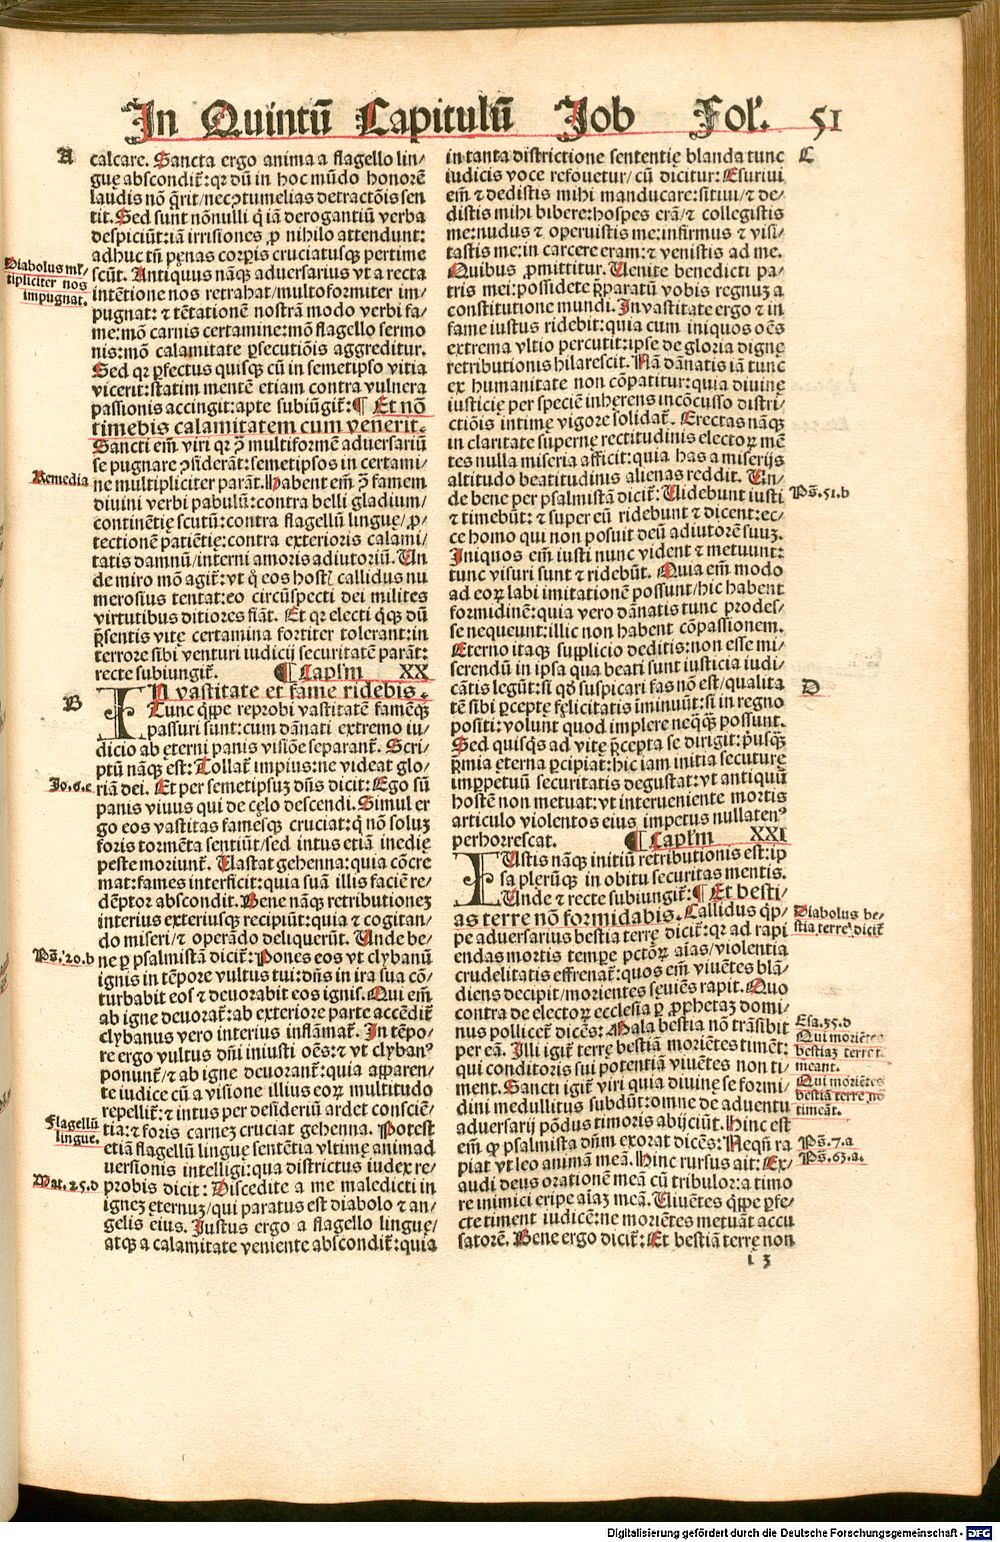 In Quintũ Capitulũ Job Fol'. 51
A
calcare. Sancta ergo anima a flagello lin/
guę abscondit̃: qr dũ in hoc mũdo honorẽ
laudis nõ q̃rit/nec ꝯtumelias detractõis sen
tit. Sed sunt nõnulli q̃ iã derogantiũ verba
despiciũt: iã irrisiones ꝓ nihilo attendunt:
adhuc tñ pęnas corpis cruciatusqꝫ pertime
scũt. Antiquus nãqꝫ aduersarius vt a recta
intẽtione nos retrahat/multoformiter im/
pugnat: ⁊ tẽtationẽ nostrã modo verbi fa/
me: mõ carnis certamine: mõ flagello sermo
nis: mõ calamitate ꝑsecutiõis aggreditur.
Sed qr ꝑfectus quisqꝫ cũ in semetipso vitia
vicerit: statim mentẽ etiam contra vulnera
passionis accingit: apte subiũgit̃: ¶ Et nõ
timebis calamitatem cum venerit.
Sancti em̃ viri qr ꝯ multiformẽ aduersariũ
se pugnare ꝯsiderãt: semetipsos in certami/
ne multipliciter parãt. Habent em̃ ꝯ famem
diuini verbi pabulũ: contra belli gladium/
continẽtię scutũ: contra flagellũ linguę/ꝓ/
tectionẽ patiẽtię: contra exterioris calami/
tatis damnũ/interni amoris adiutoriũ. Un
de miro mõ agit̃: vt q̃ eos hostꝭ callidus nu
merosius tentat: eo circũspecti dei milites
virtutibus ditiores fiãt. Et qr electi q̃qꝫ dũ
p̃sentis vitę certamina fortiter tolerant: in
terrore sibi venturi iudicij securitatẽ parãt:
recte subiungit̃. ¶ Capl'm XX
Diabolus ml'
tipliciter nos
impugnat.
Remedia
B
IN vastitate et fame ridebis.
Tunc q̃ppe reprobi vastitatẽ famẽqꝫ
passuri sunt: cum dãnati extremo iu/
dicio ab ęterni panis visiõe separant̃. Scri/
ptũ nãqꝫ est: Tollat̃ impius: ne videat glo/
riã dei. Et per semetipsuꝫ dñs dicit: Ego sũ
panis viuus qui de cęlo descendi. Simul er
go eos vastitas famesqꝫ cruciat: q̃ nõ soluꝫ
foris tormẽta sentiũt/sed intus etiã inedię
peste moriunt̃. Uastat gehenna: quia cõcre
mat: fames interficit: quia suã illis faciẽ re/
dẽptor abscondit. Bene nãqꝫ retributioneꝫ
interius exteriusqꝫ recipiũt: quia ⁊ cogitan/
do miseri/⁊ operãdo deliquerũt. Unde be/
ne ꝑ psalmistã dicit̃: Pones eos vt clybanũ
ignis in tẽpore vultus tui: dñs in ira sua cõ/
turbabit eos ⁊ deuorabit eos ignis. Qui em̃
ab igne deuorat̃: ab exteriore parte accẽdit̃
clybanus vero interius inflãmat̃. In tẽpo/
re ergo vultus dñi iniusti oẽs: ⁊ vt clybanꝰ
ponunt̃/⁊ ab igne deuorant̃: quia apparen/
te iudice cũ a visione illius eoꝝ multitudo
repellit̃: ⁊ intus per desideriũ ardet consciẽ/
tia: ⁊ foris carneꝫ cruciat gehenna. Potest
etiã flagellũ linguę sentẽtia vltimę animad
uersionis intelligi: qua districtus iudex re/
probis dicit: Discedite a me maledicti in
igneꝫ ęternuꝫ/qui paratus est diabolo ⁊ an/
gelis eius. Justus ergo a flagello linguę/
atqꝫ a calamitate veniente abscondit̃: quia
Jo.6.e
Ps̃.20.b
Flagellũ
lingue.
Mat.25.d
in tanta districtione sententię blanda tunc
iudicis voce refouetur/cũ dicitur: Esuriui
em̃ ⁊ dedistis mihi manducare: sitiui/⁊ de/
distis mihi bibere: hospes erã/⁊ collegistis
me: nudus ⁊ operuistis me: infirmus ⁊ visi/
tastis me: in carcere eram: ⁊ venistis ad me.
Quibus ꝓmittitur. Uenite benedicti pa/
tris mei: possidete p̃paratũ vobis regnuꝫ a
constitutione mundi. In vastitate ergo ⁊ in
fame iustus ridebit: quia cum iniquos oẽs
extrema vltio percutit: ipse de gloria dignę
retributionis hilarescit. Nã dãnatis iã tunc
ex humanitate non cõpatitur: quia diuinę
iusticię per speciẽ inherens incõcusso distri/
ctiõis intimę vigore solidat̃. Erectas nãqꝫ
in claritate supernę rectitudinis electoꝝ mẽ
tes nulla miseria afficit: quia has a miserijs
altitudo beatitudinis alienas reddit. Un/
de bene per psalmistã dicit̃: Uidebunt iusti
⁊ timebũt: ⁊ super eũ ridebunt ⁊ dicent: ec/
ce homo qui non posuit deũ adiutorẽ suuꝫ.
Iniquos em̃ iusti nunc vident ⁊ metuunt:
tunc visuri sunt ⁊ ridebũt. Quia em̃ modo
ad eoꝝ labi imitationẽ possunt/hic habent
formidinẽ: quia vero dãnatis tunc prodes/
se nequeunt: illic non habent cõpassionem.
Ęterno itaqꝫ supplicio deditis: non esse mi/
serendũ in ipsa qua beati sunt iusticia iudi/
cãtis legũt: si qd̃ suspicari fas nõ est/qualita
tẽ sibi ꝑceptę fęlicitatis iminuũt: si in regno
positi: volunt quod implere neq̃qꝫ possunt.
Sed quisq̃s ad vitę p̃cepta se dirigit: p̃usqꝫ̃
p̃mia ęterna ꝑcipiat: hic iam initia secuturę
imꝑpetuũ securitatis degustat: vt antiquũ
hostẽ non metuat: vt interueniente mortis
articulo violentos eius impetus nullatenꝰ
perhorrescat. ¶ Capl'm XXI
C
Ps̃.51.b
D
IUstis nãqꝫ initiũ retributionis est: ip
sa plerũqꝫ in obitu securitas mentis.
Unde ⁊ recte subiungit̃: ¶ Et besti/
as terre nõ formidabis. Callidus q̃p/
pe aduersarius bestia terrę dicit̃: qr ad rapi
endas mortis tempe pctõꝝ aĩas/violentia
crudelitatis effrenat̃: quos em̃ viuẽtes blã/
diens decipit/morientes sęuiẽs rapit. Quo
contra de electoꝝ ecclesia ꝑ ꝓphetaꝫ domi/
nus pollicet̃ dicẽs: Mala bestia nõ trãsibit
per eã. Illi igit̃ terrę bestiã moriẽtes timẽt:
qui conditoris sui potentiã viuẽtes non ti/
ment. Sancti igit̃ viri quia diuinę se formi/
dini medullitus subdũt: omne de aduentu
aduersarij põdus timoris abijciũt. Hinc est
em̃ ꝙ psalmista dñm exorat dicẽs: Neqñ ra
piat vt leo animã meã. Hinc rursus ait: Ex/
audi deus orationẽ meã cũ tribulor: a timo
re inimici eripe aĩaꝫ meã. Uiuẽtes q̃ppe ꝑfe/
cte timent iudicẽ: ne moriẽtes metuãt accu
satorẽ. Bene ergo dicit̃: Et bestiã terrę non
i 3
Diabolus be/
stia terre dicit̃
Esa.35.d
Qui moriẽtes
bestiaꝫ terre t
meant.
Qui moriẽtes
bestiã terre nõ
timeãt.
Ps̃.7.a
Ps̃.63.a.
Digitalisierung gefördert durch die Deutsche Forschungsgemeinschaft - DFG